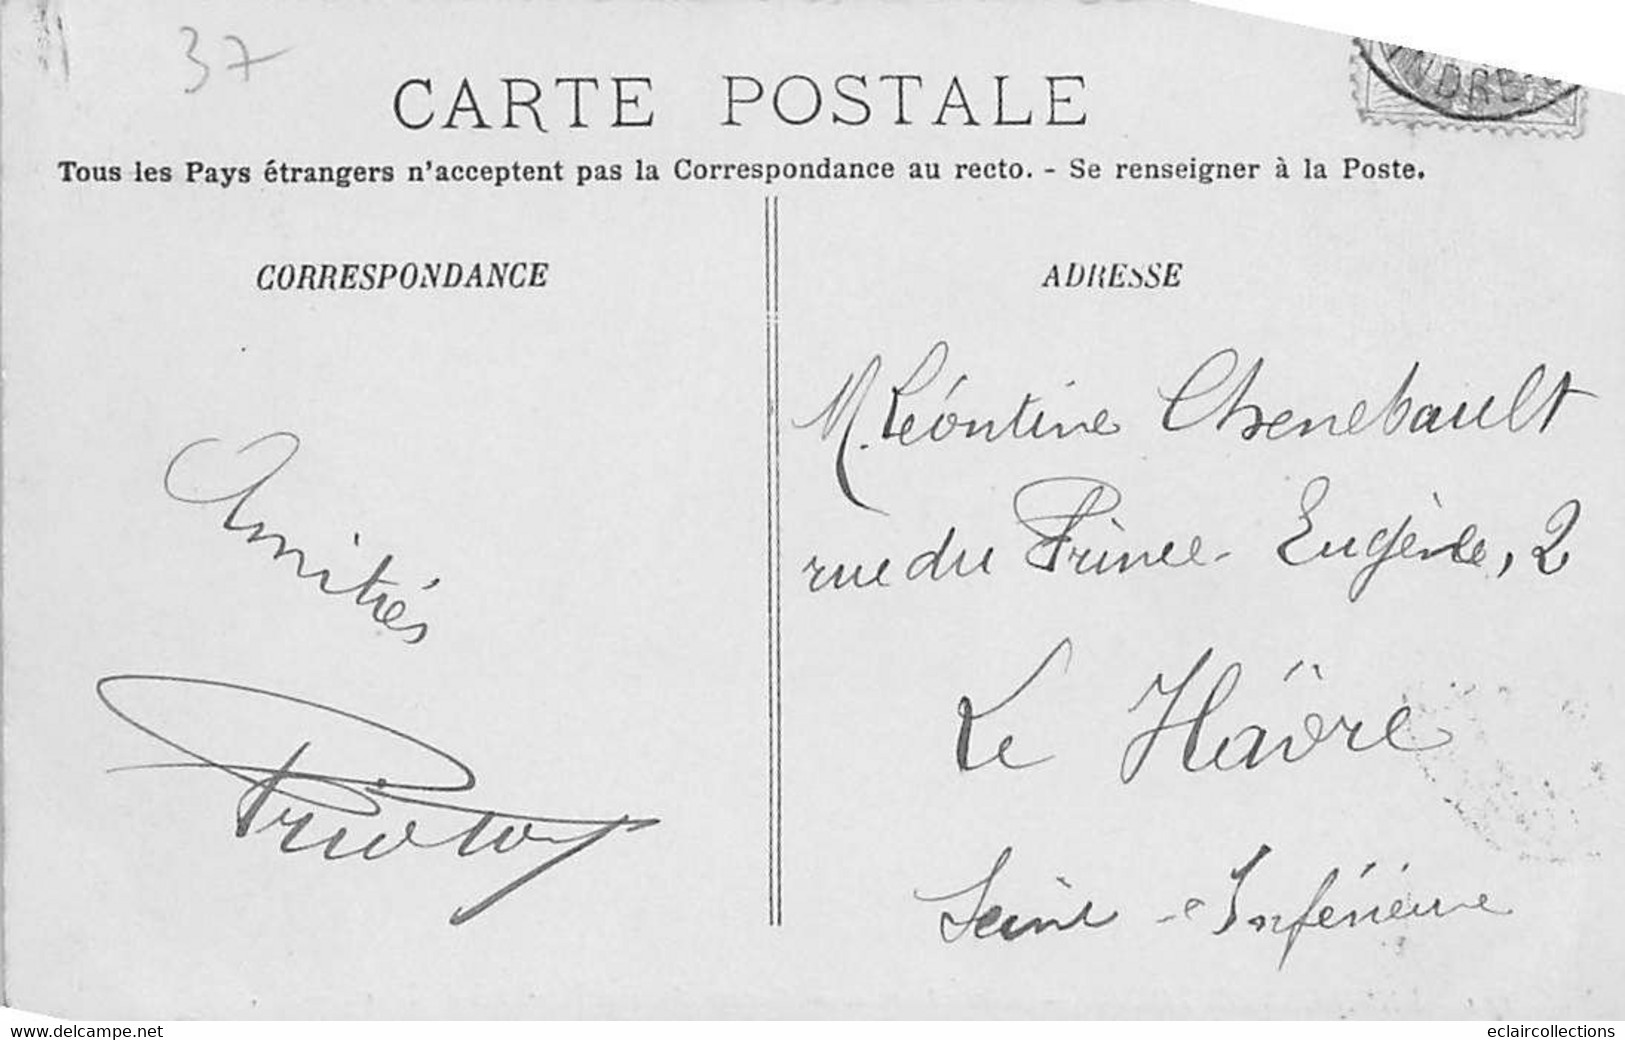 37
CARTE POSTALE
NDRE
Tous les Pays étrangers n'acceptent pas la Correspondance au recto. - Se renseigner à la Poste.
CORRESPONDANCE
Amitiés
ADRESSE
M. Léontine Chenebault
rue du Prince-Eugène, 2
Le Hâvre
Seine-Inférieure
www.delcampe.net
eclaircollections